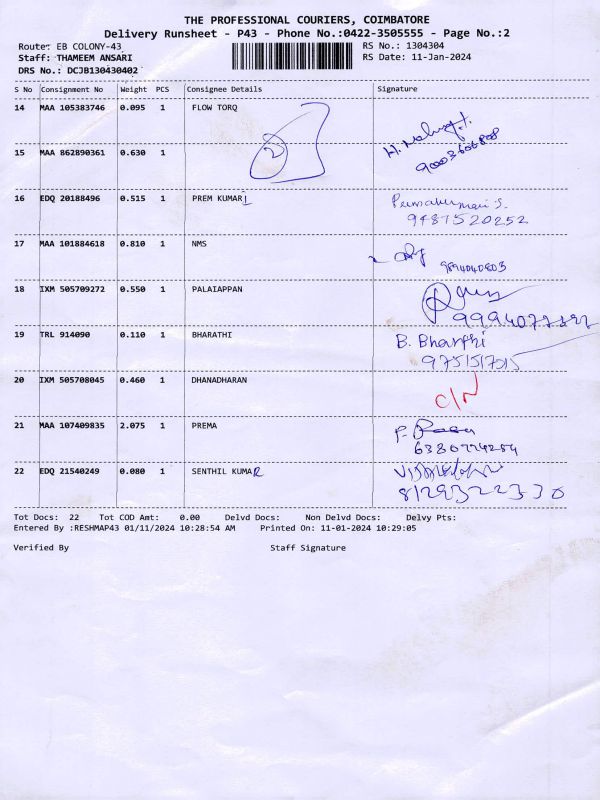 THE PROFESSIONAL COURIERS, COIMBATORE
Delivery Runsheet - P43 - Phone No.:0422-3505555 - Page No.:2
Route: EB COLONY-43 RS No.: 1304304
Staff: THAMEEM ANSARI RS Date: 11-Jan-2024
DRS No.: DCJB130430402
S No Consignment No Weight PCS Consignee Details Signature
14 MAA 105383746 0.095 1 FLOW TORQ
2
15 MAA 862890361 0.630 1
16 EDQ 20188496 0.515 1 PREM KUMAR
9487520252
17 MAA 101884618 0.810 1 NMS
18 IXM 505709272 0.550 1 PALAIAPPAN
19 TRL 914090 0.110 1 BHARATHI B. Bharathi
20 IXM 505708045 0.460 1 DHANADHARAN
21 MAA 107409835 2.075 1 PREMA P.
22 EDQ 21540249 0.080 1 SENTHIL KUMAR
8129322330
Tot Docs: 22 Tot COD Amt: 0.00 Delvd Docs: Non Delvd Docs: Delvy Pts:
Entered By :RESHMAP43 01/11/2024 10:28:54 AM Printed On: 11-01-2024 10:29:05
Verified By Staff Signature